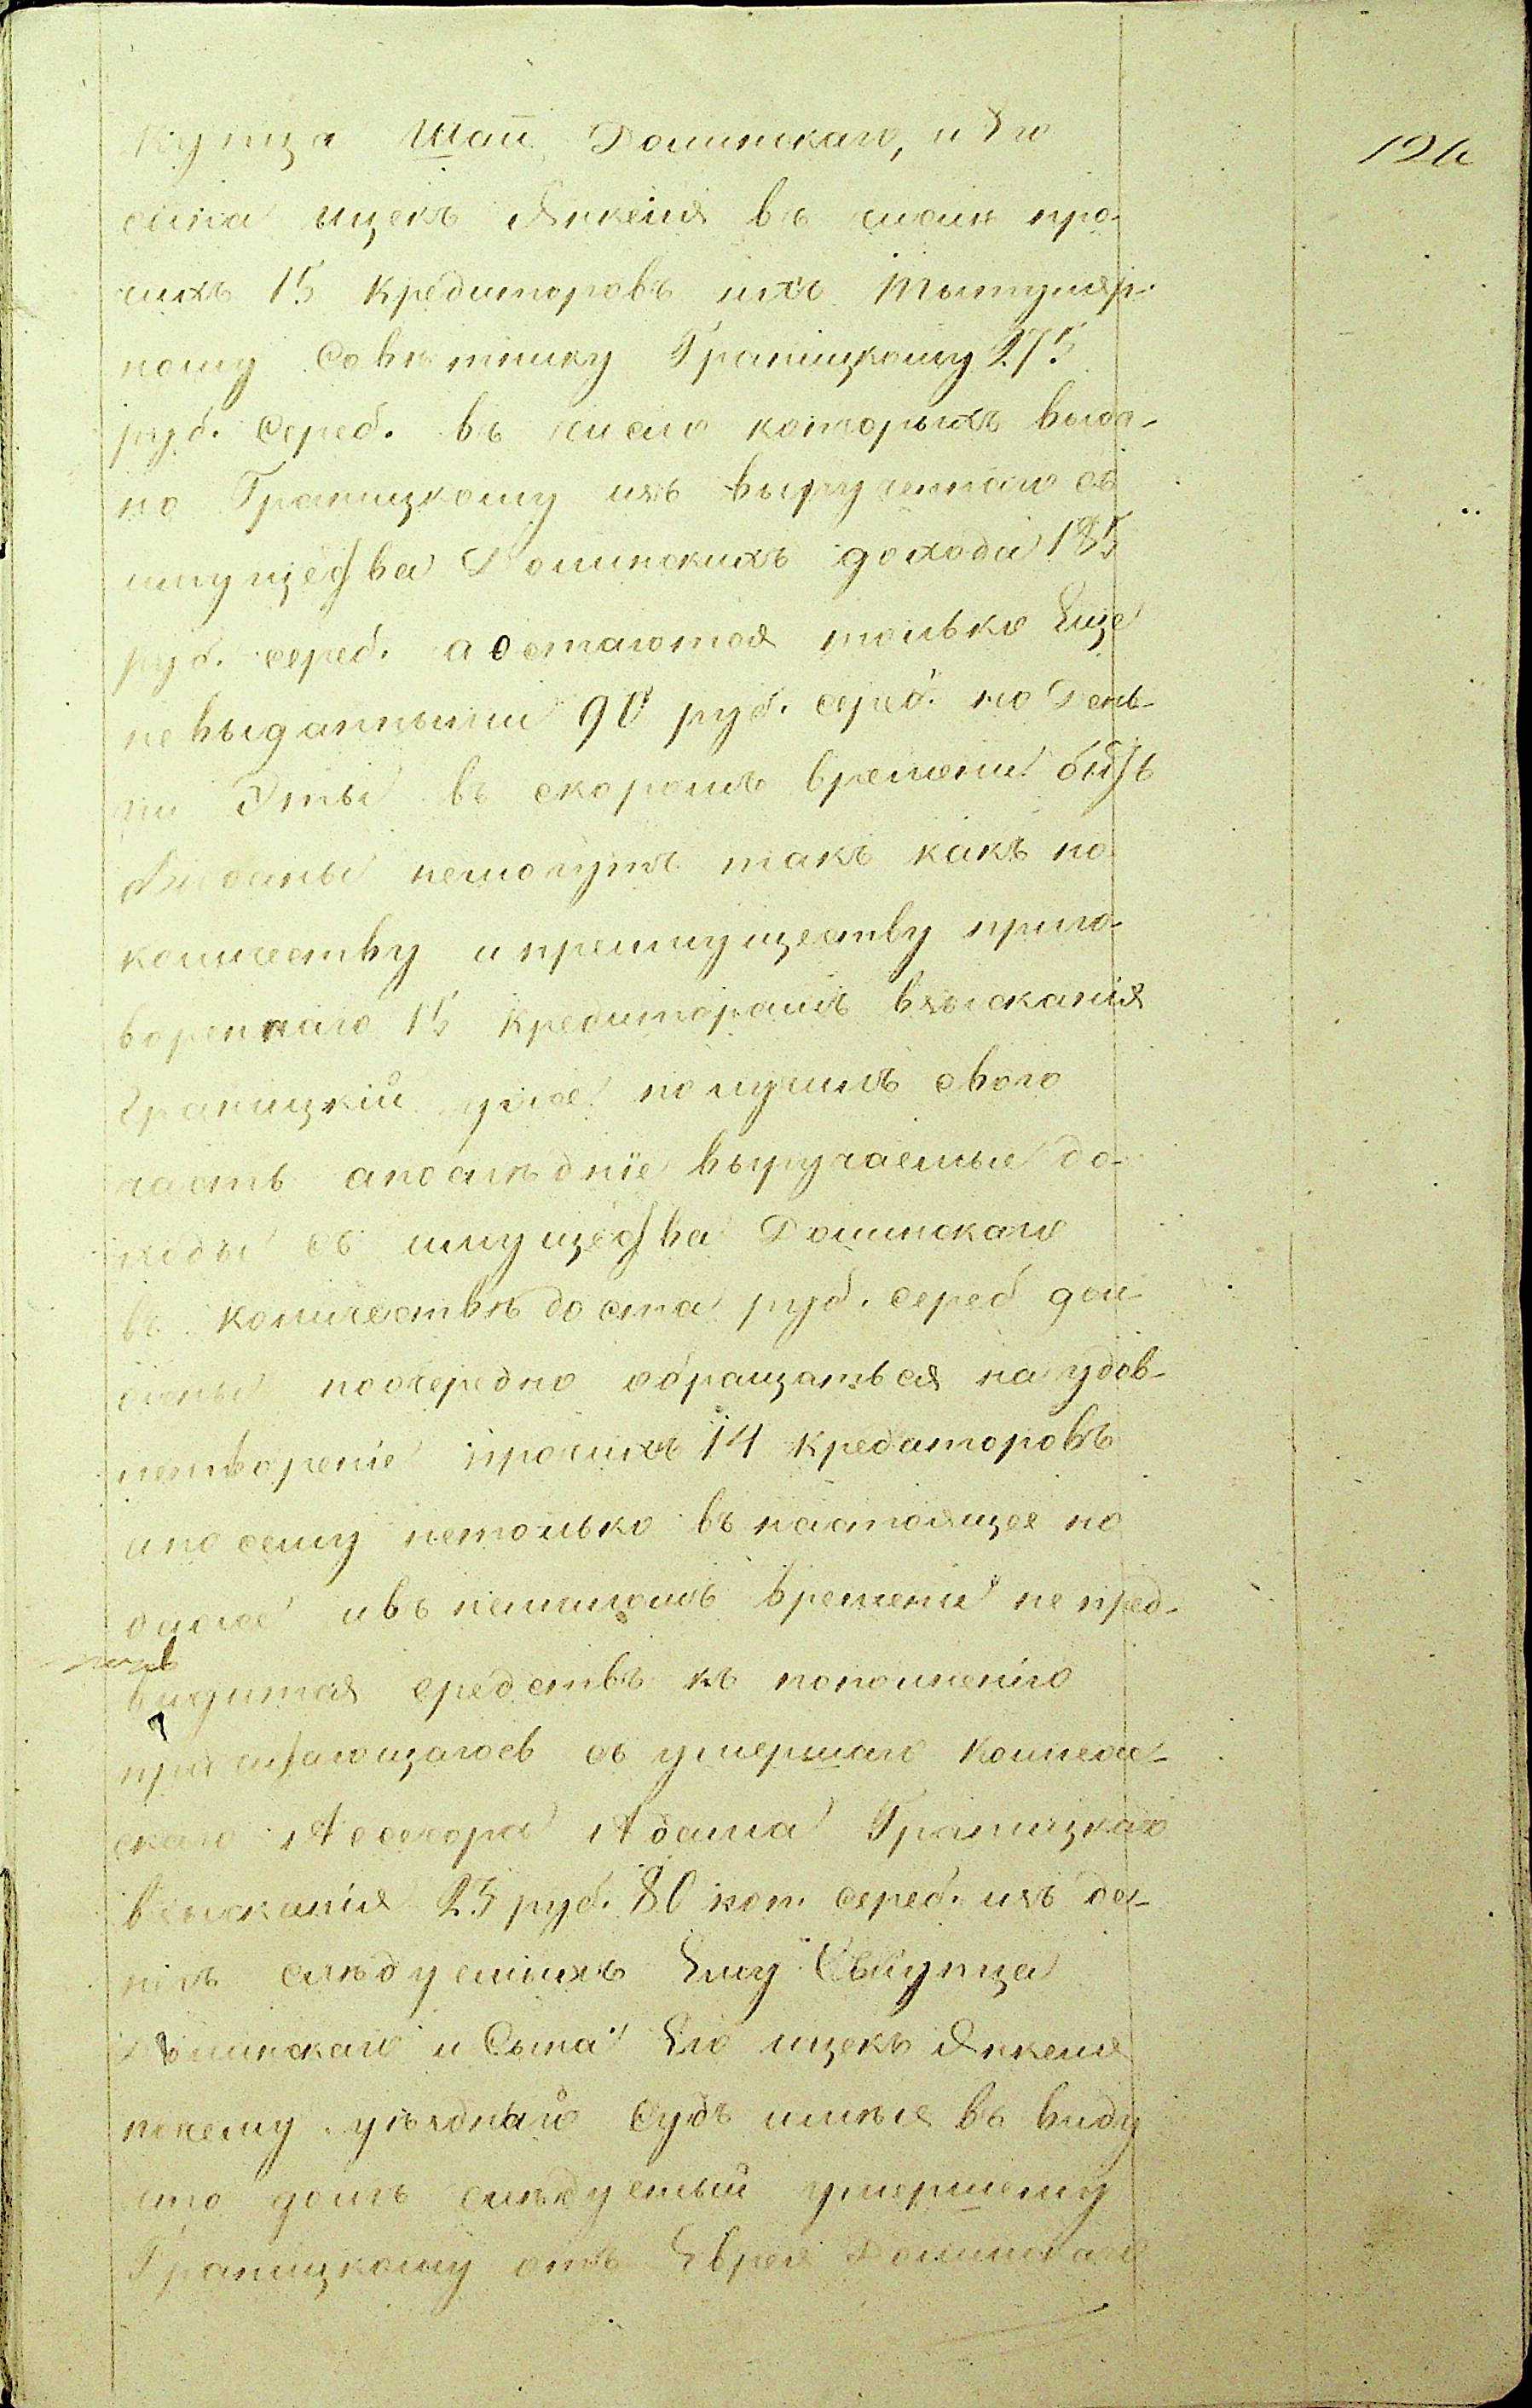 купца Шаи Долинскаго, и Его
сына ицекъ Янкеля въ числѣ про-
чихъ 15 кредиторовъ ихъ титуляр-
ному Совѣтнику Границкому 275
руб. Сереб. въ число которыхъ выда-
но Границкому изъ вырученнаго съ
имущества Долинскихъ дохода 185
руб. сереб. а остаются только Еще
не выданными 90 руб. сереб. но День-
ги Эты въ скоромъ времени быть
выданы немогутъ такъ какъ по
количеству и преимуществу приго-
вореннаго 15 кредиторамъ взысканія
Границкій уже получилъ свою
часть апослѣдніе выручаемые до-
ходы съ имущества Долинскаго
въ количествѣ до ста руб. сереб дол-
жны поочередно обращаться на удов-
летвореніе прочихъ 14 кредиторовъ
ипосему нетолько въ настоящее но
даже ивъ немнагомъ времени не пред-
видится средствъ къ пополненію
причитающагося съ умершаго Коллеж-
скаго Асесора Адама Границкаго
взысканія 25 руб. 80 коп. сереб. изъ де-
негъ слѣдуемыхъ Ему Съкупца
Долинскаго и Сына Его ицекъ Янкеля
почему уѣздный Судъ имѣя въ виду
что долгъ слѣдуемый умершему
Границкому отъ Еврея Долинскаго